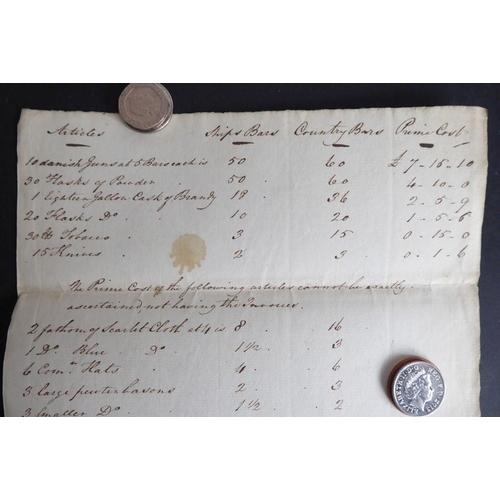 Articles Ships Bars Country Bars Prime Cost
10 danish Guns at 5 Bars each is 50 60 £7-15-10
30 Flasks of Powder 50 60 4-10-0
1 Eighteen Gallon Cask of Brandy 18 36 2-5-9
20 Flasks Do. 10 20 1-5-6
30 lb Tobacco 3 15 0-15-0
15 Knives 2 3 0-1-6
The Prime Cost of the following articles cannot be exactly
ascertained, not having the Invoices.
2 fathom of Scarlet Cloth at 4 is 8 16
1 Do. Blue Do. 1 1/2 3
6 Comn. Hats 4 6
3 large pewter basons 2 3
3 smaller Do. 1 1/2 2
ELIZABETH II D G REG F D